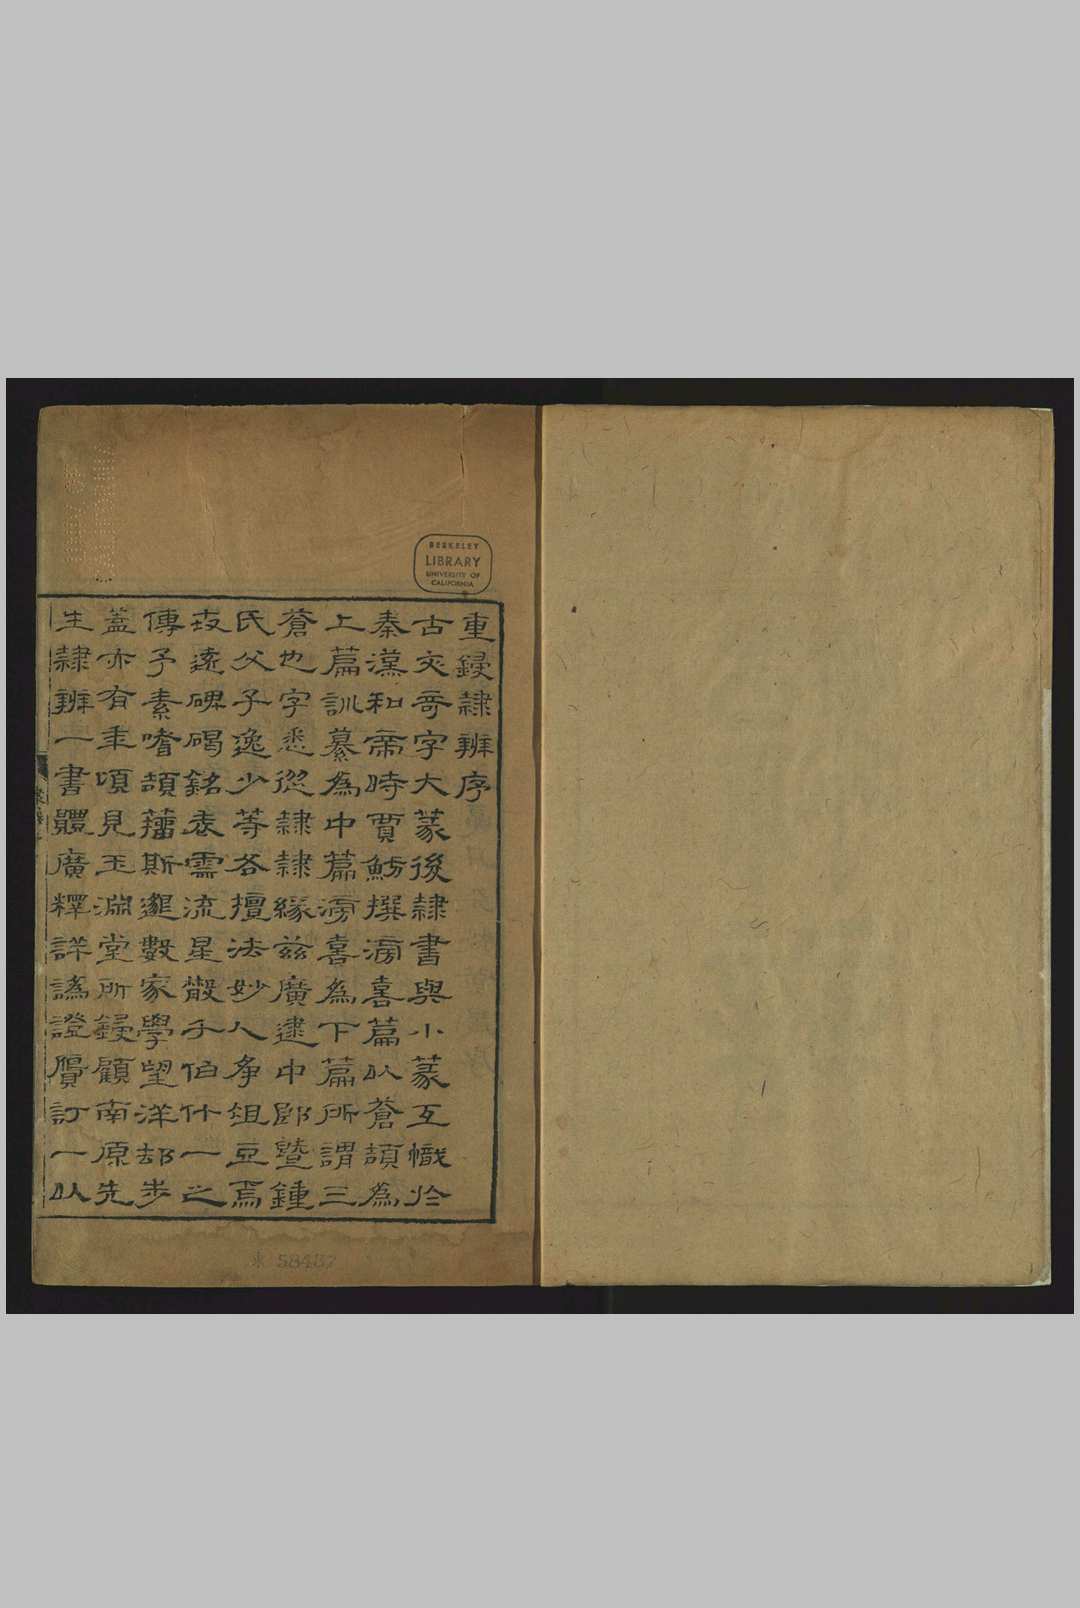 BERKELEY
LIBRARY
UNIVERSITY OF
CALIFORNIA
重鋟隸辨序
古文奇字大篆後隸書與小篆互幟於
秦漢和帝時賈魴撰滂喜篇以蒼頡為
上篇訓纂為中篇滂喜為下篇所謂三
蒼也字悉從隸隸緣茲廣逮中郎暨鍾
氏父子逸少等各擅法妙人爭俎豆焉
歧遠碑碣銘表霝流星散千伯什一之
傳予素嗜頡籒斯邈數家學望洋却步
蓋亦有年頃見玉淵堂所鋟顧南原先
生隸辨一書體廣釋詳譌證贗訂一以
* 58487